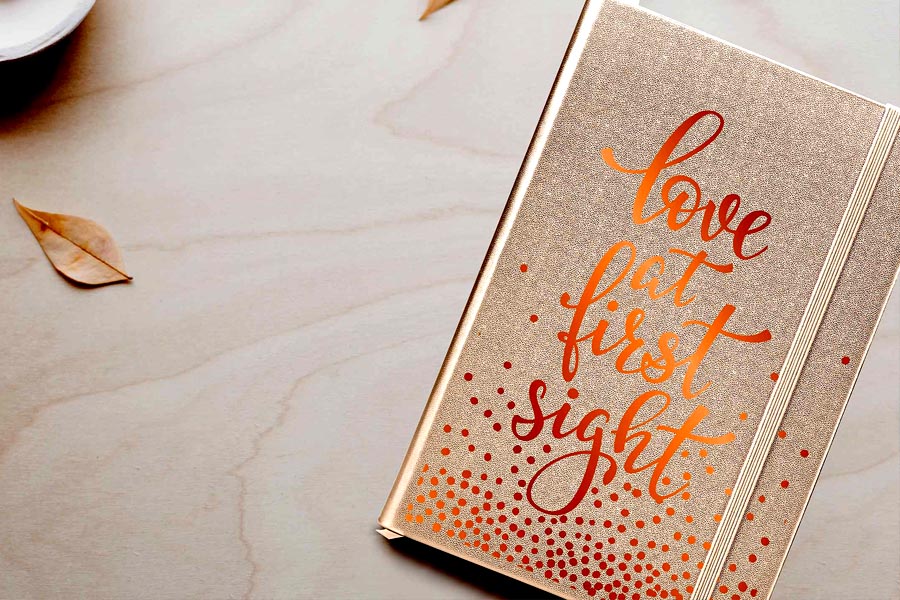 love
at
first
sight